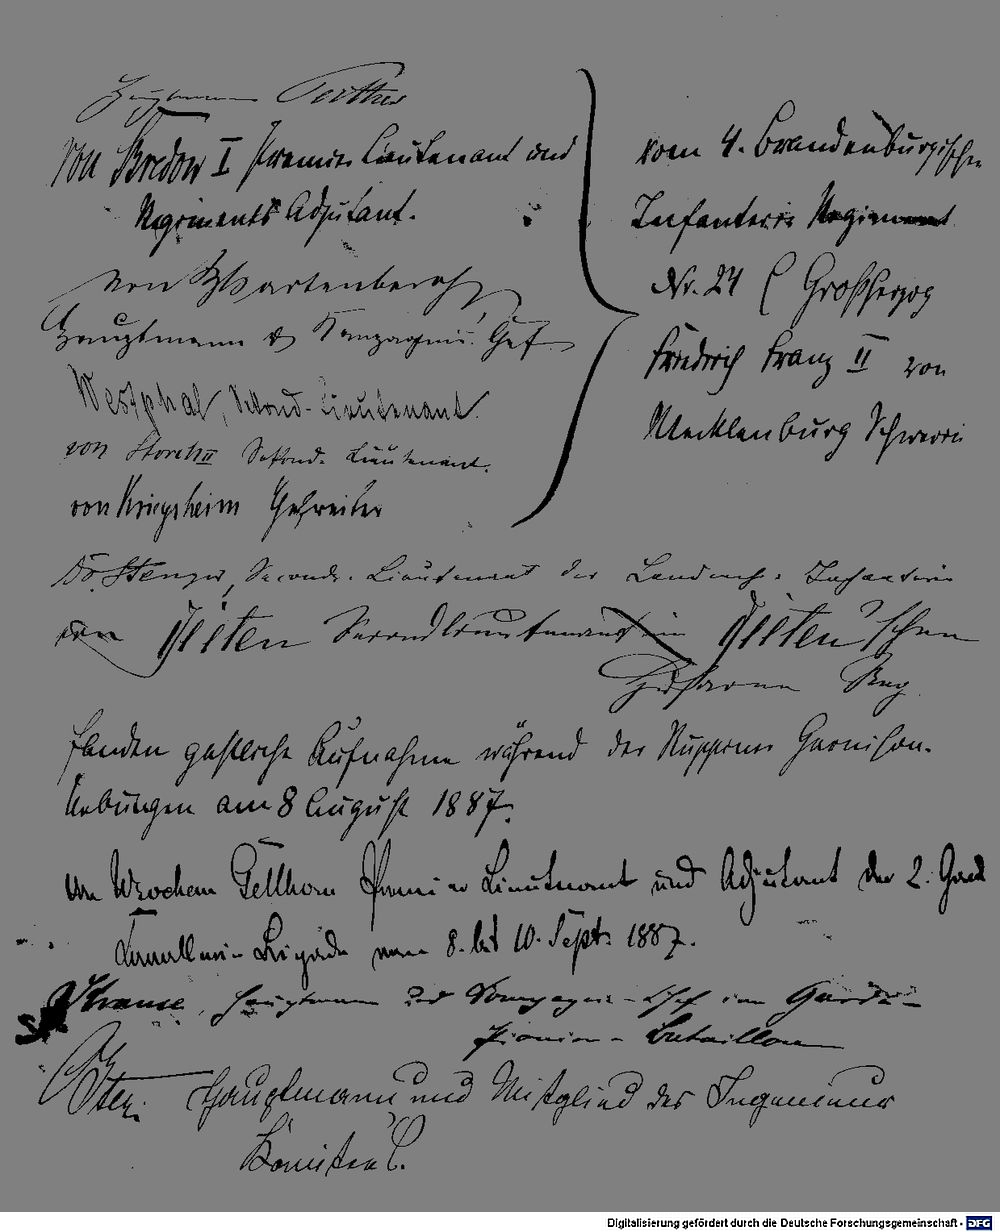 Hauptmann
von Bredow I Premier Lieutenant und
Regiments Adjutant.
von Wartenberg
Hauptmann & Kompagnie Chef
Westphal, Sekond-Lieutenant.
von Storch II Sekond-Lieutenant.
von Kriegsheim Gefreiter
vom 4. Brandenburgischen
Infanterie Regiment
Nr. 24 (Großherzog
Friedrich Franz II von
Mecklenburg Schwerin
Dr. Stenger, Seconde-Lieutenant der Landwehr-Infanterie
von Zieten Secondlieutenant im Zieten'schen
Husaren Reg
fanden gastliche Aufnahme während der Ruppiner Garnison-
Uebungen am 8 August 1887.
von Wrochem Gellhorn Premier Lieutenant und Adjutant der 2. Garde
Kavallerie-Brigade vom 8. bis 10. Sept. 1887.
Krause, Hauptmann und Compagnie-Chef im Garde-
Pionier-Bataillon
Hauptmann und Mitglied des Ingenieur
Komitee's.